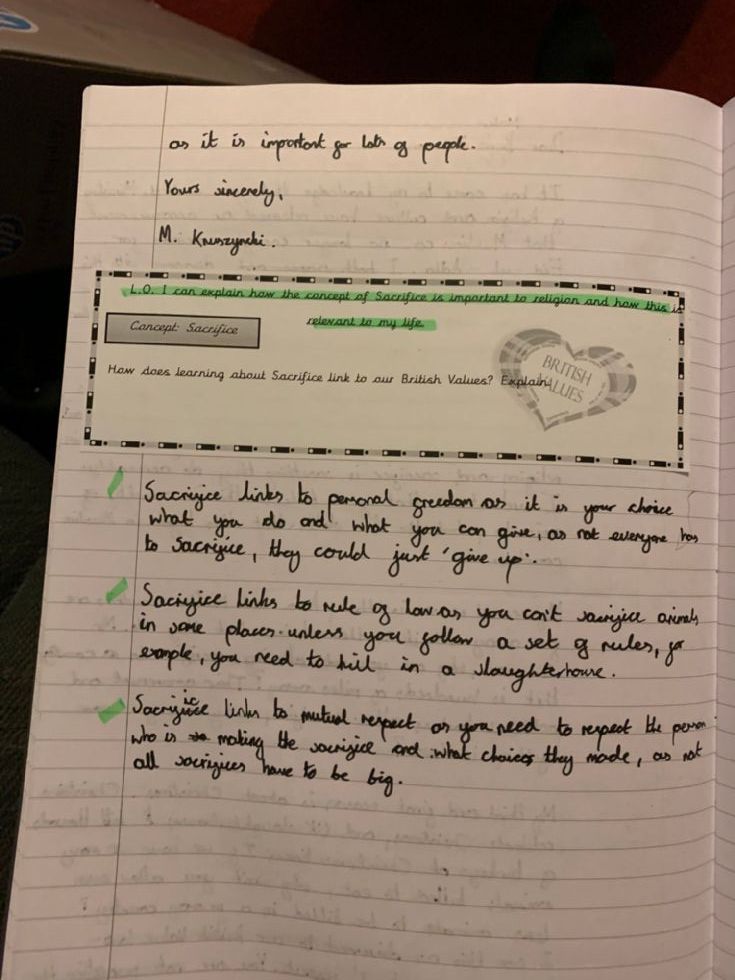 as it is important for lots of people.
Yours sincerely,
M. Kruszynski.
L.O. I can explain how the concept of Sacrifice is important to religion and how this is
relevant to my life.
Concept: Sacrifice
How does learning about Sacrifice link to our British Values? Explain.
BRITISH
VALUES
Sacrifice links to personal freedom as it is your choice
what you do and what you can give, as not everyone has
to sacrifice, they could just 'give up'.
Sacrifice links to rule of law as you can't sacrifice animals
in some places unless you follow a set of rules, for
example, you need to kill in a slaughterhouse.
Sacrifice links to mutual respect as you need to respect the person
who is making the sacrifice and what choices they made, as not
all sacrifices have to be big.